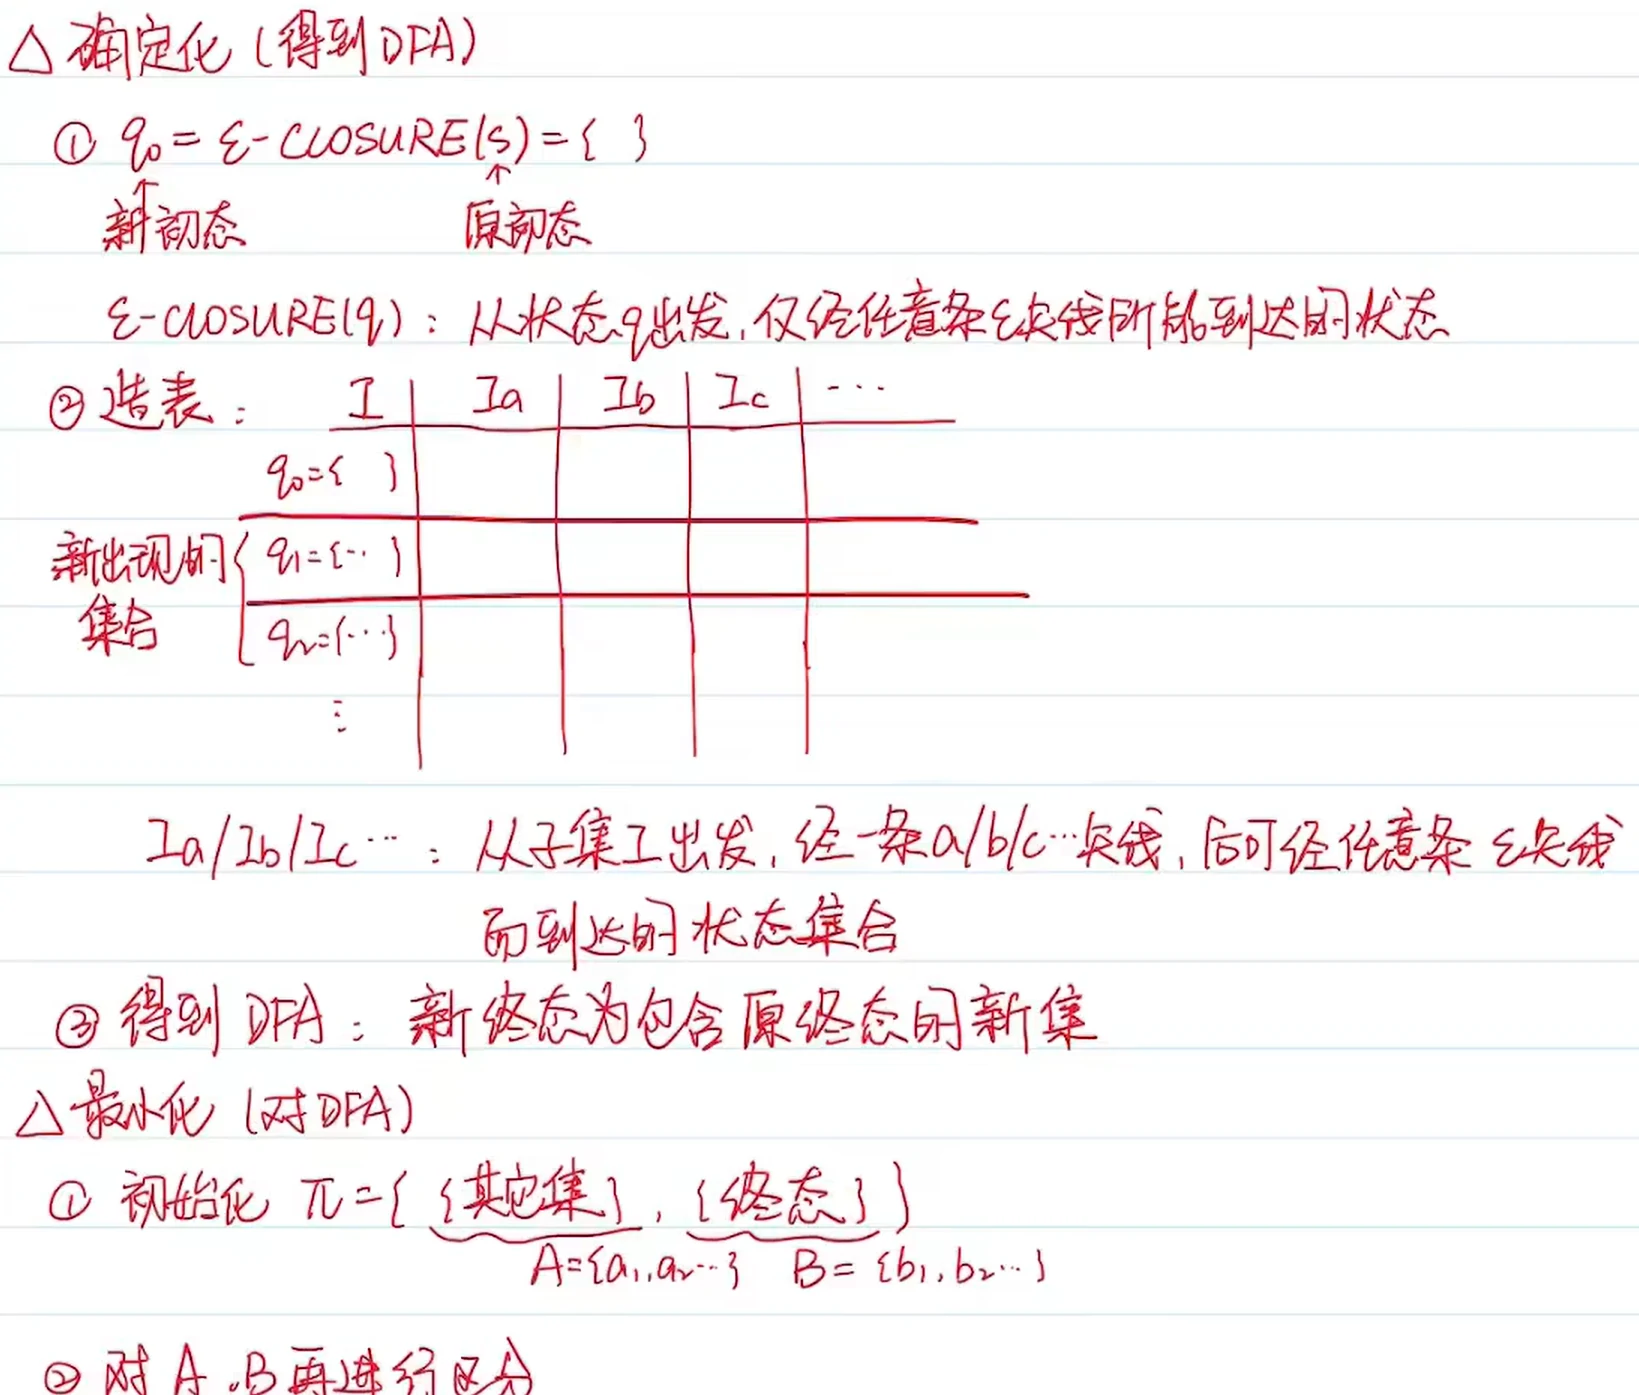 △ 确定化 (得到DFA)
① q₀ = ε-CLOSURE(S) = { }
↑ ↑
新初态 原初态
ε-CLOSURE(q): 从状态q出发, 仅经任意条ε矢线所能到达的状态
② 造表: I Ia Ib Ic ...
q₀={ }
新出现的集合 { q₁={...}
q₂={...}
⋮
Ia/Ib/Ic...: 从子集I出发, 经一条a/b/c...矢线, 后可经任意条ε矢线
而到达的状态集合
③ 得到 DFA: 新终态为包含原终态的新集
△ 最小化 (对DFA)
① 初始化 π={ {其它集}, {终态} }
A={a₁,a₂...} B={b₁,b₂...}
② 对 A,B再进行区分